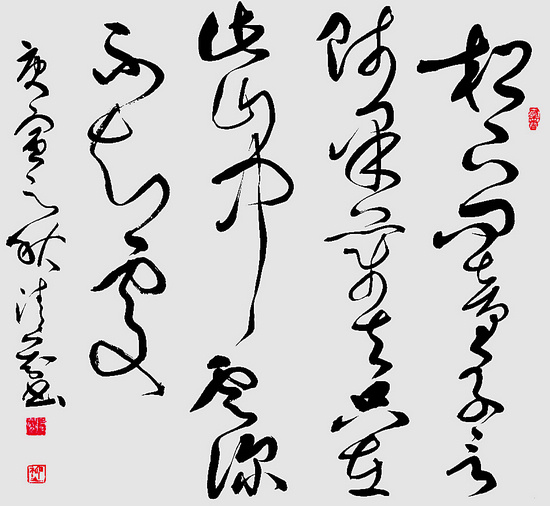 松下問童子言
師采藥去只在
此山中雲深
不知處
庚寅之秋清書